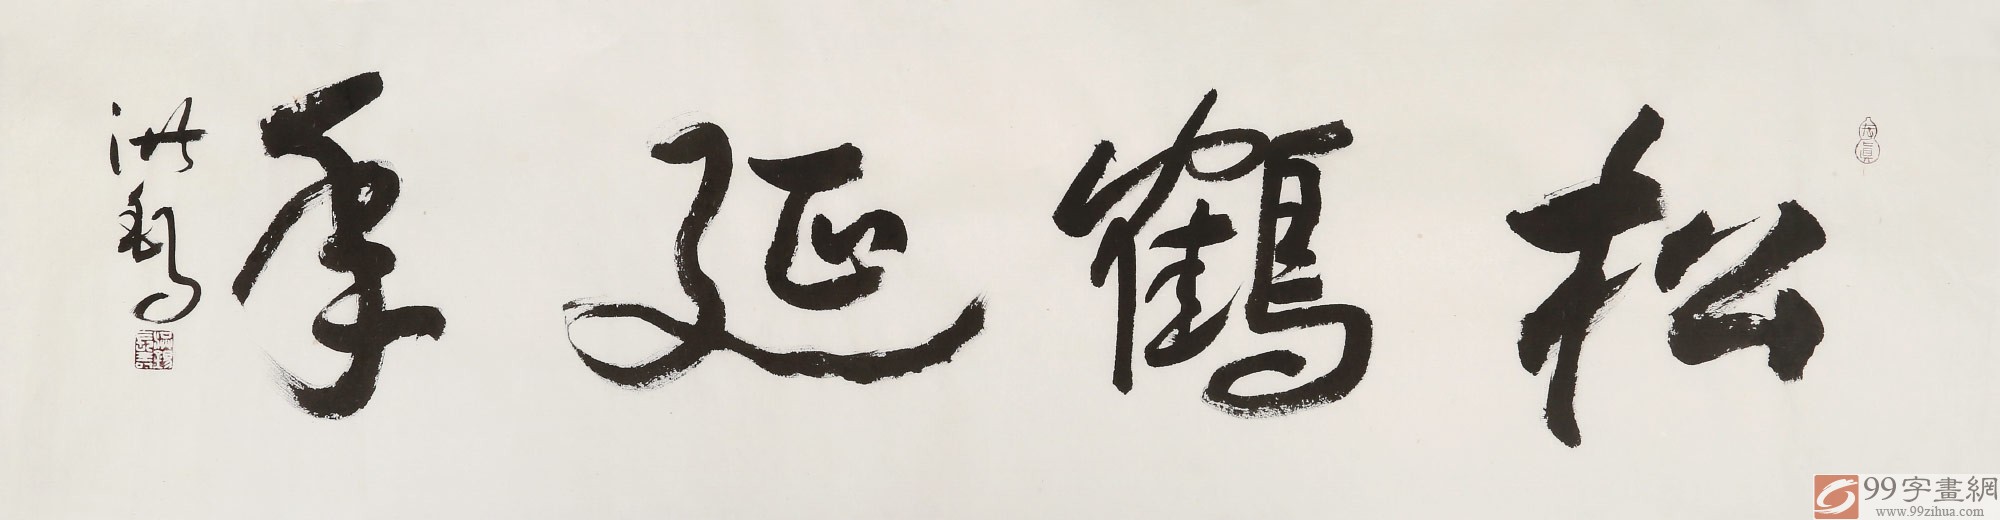 松鶴延年
洪毅
99字畫網
www.99zihua.com